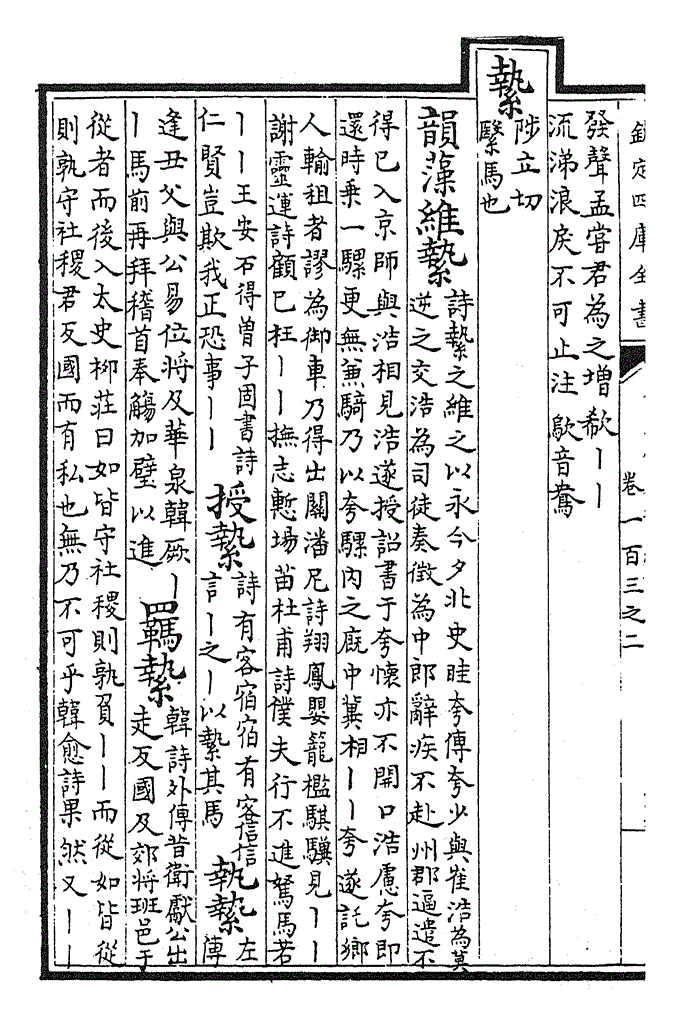 欽定四庫全書
卷一百三之二
發聲孟嘗君為之増欷丨丨
流涕浪戾不可止注歍音鴦
縶
陟立切
繫馬也
韻藻維縶
詩縶之維之以永今夕北史眭夸傳夸少與崔浩為莫
逆之交浩為司徒奏徴為中郎辭疾不赴州郡逼遣不
得已入京師與浩相見浩遂授詔書于夸懐亦不開口浩慮夸即
還時乗一騾更無兼騎乃以夸騾内之廐中冀相丨丨夸遂託鄉
人輸租者謬為御車乃得出關潘尼詩翔鳳嬰籠檻騏驥見丨丨
謝靈運詩顧已枉丨丨撫志慙場苗杜甫詩僕夫行不進駑馬若
丨丨王安石得曾子固書詩
仁賢豈欺我正恐事丨丨
授縶
詩有客宿宿有客信信
言丨之丨以縶其馬
執縶
左
傳
逢丑父與公易位将及華泉韓厥丨
丨馬前再拜稽首奉觴加璧以進
羈縶
韓詩外傳昔衛獻公出
走反國及郊将班邑于
從者而後入太史柳莊曰如皆守社稷則孰負丨丨而從如皆從
則孰守社稷君反國而有私也無乃不可乎韓愈詩果然又丨丨